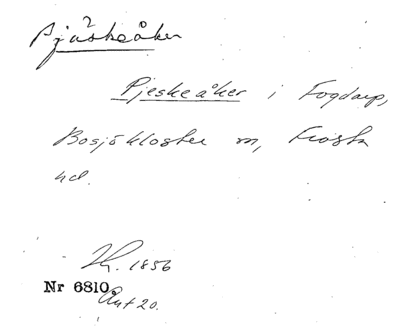 Pjäskeåker
Pjeskeåker i Fogdarp,
Bosjökloster sn, Frosta
hd.
1856
Nr 6810
Ant 20.